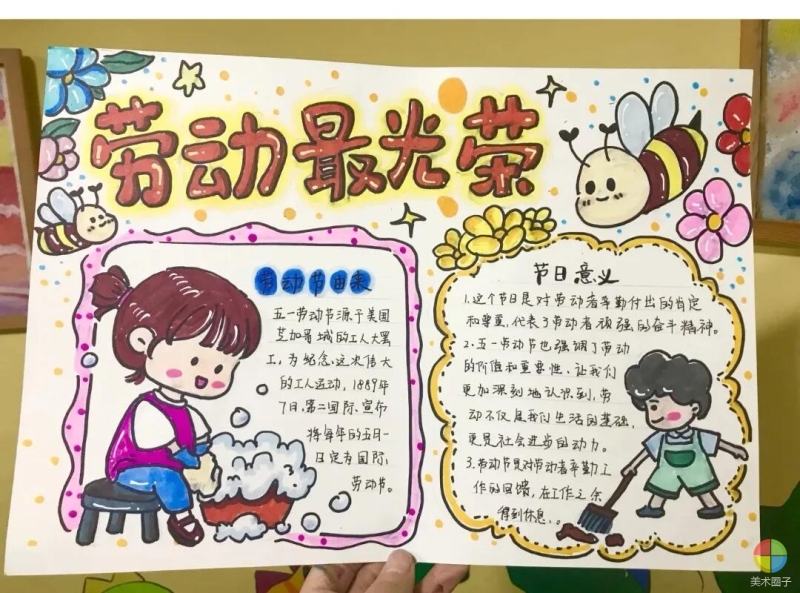 劳动最光荣
劳动节由来
五一劳动节源于美国
芝加哥城的工人大罢
工，为纪念这次伟大
的工人运动，1889年
7月，第二国际宣布
将每年的五月一
日定为国际
劳动节。
节日意义
1.这个节日是对劳动者辛勤付出的肯定
和尊重，代表了劳动者顽强的奋斗精神。
2.五一劳动节也强调了劳动
的价值和重要性、让我们
更加深刻地认识到，劳
动不仅是我们生活的基础，
更是社会进步的动力。
3.劳动节是对劳动者辛勤工
作的回馈，在工作之余
得到休息。
美术圈子